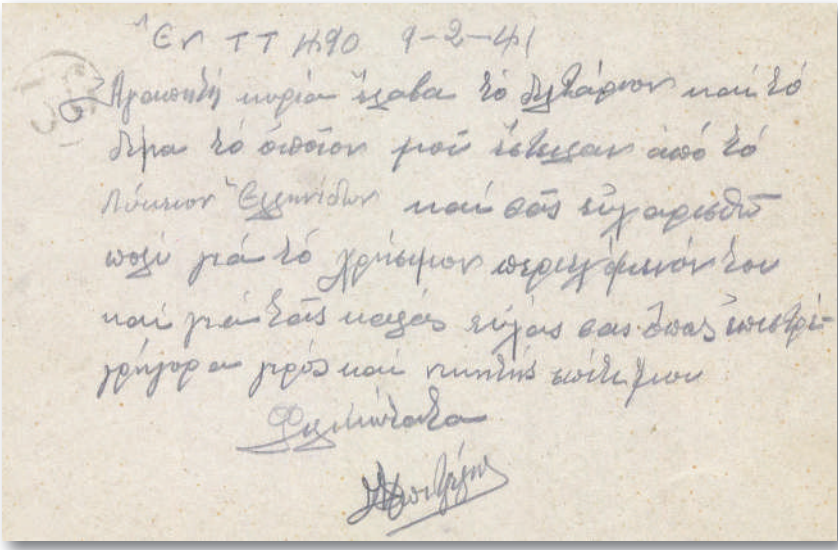 Ἐν Τ Τ 1190 9-2-41
Ἀγαπητή κυρία ἔλαβα τό δελτάριον καί τό
δέμα τό ὁποῖον μοῦ ἔστειλαν ἀπό τό
Λύκειον Ἑλληνίδων καί σᾶς εὐχαριστῶ
πολύ γιά τό χρήσιμον περιεχόμενόν του
καί γιά τάς καλάς εὐχάς σας ὅπως ἐπιστρέ-
γρήγορα γερός καί νικητής σπίτι μου
Φιλικώτατα